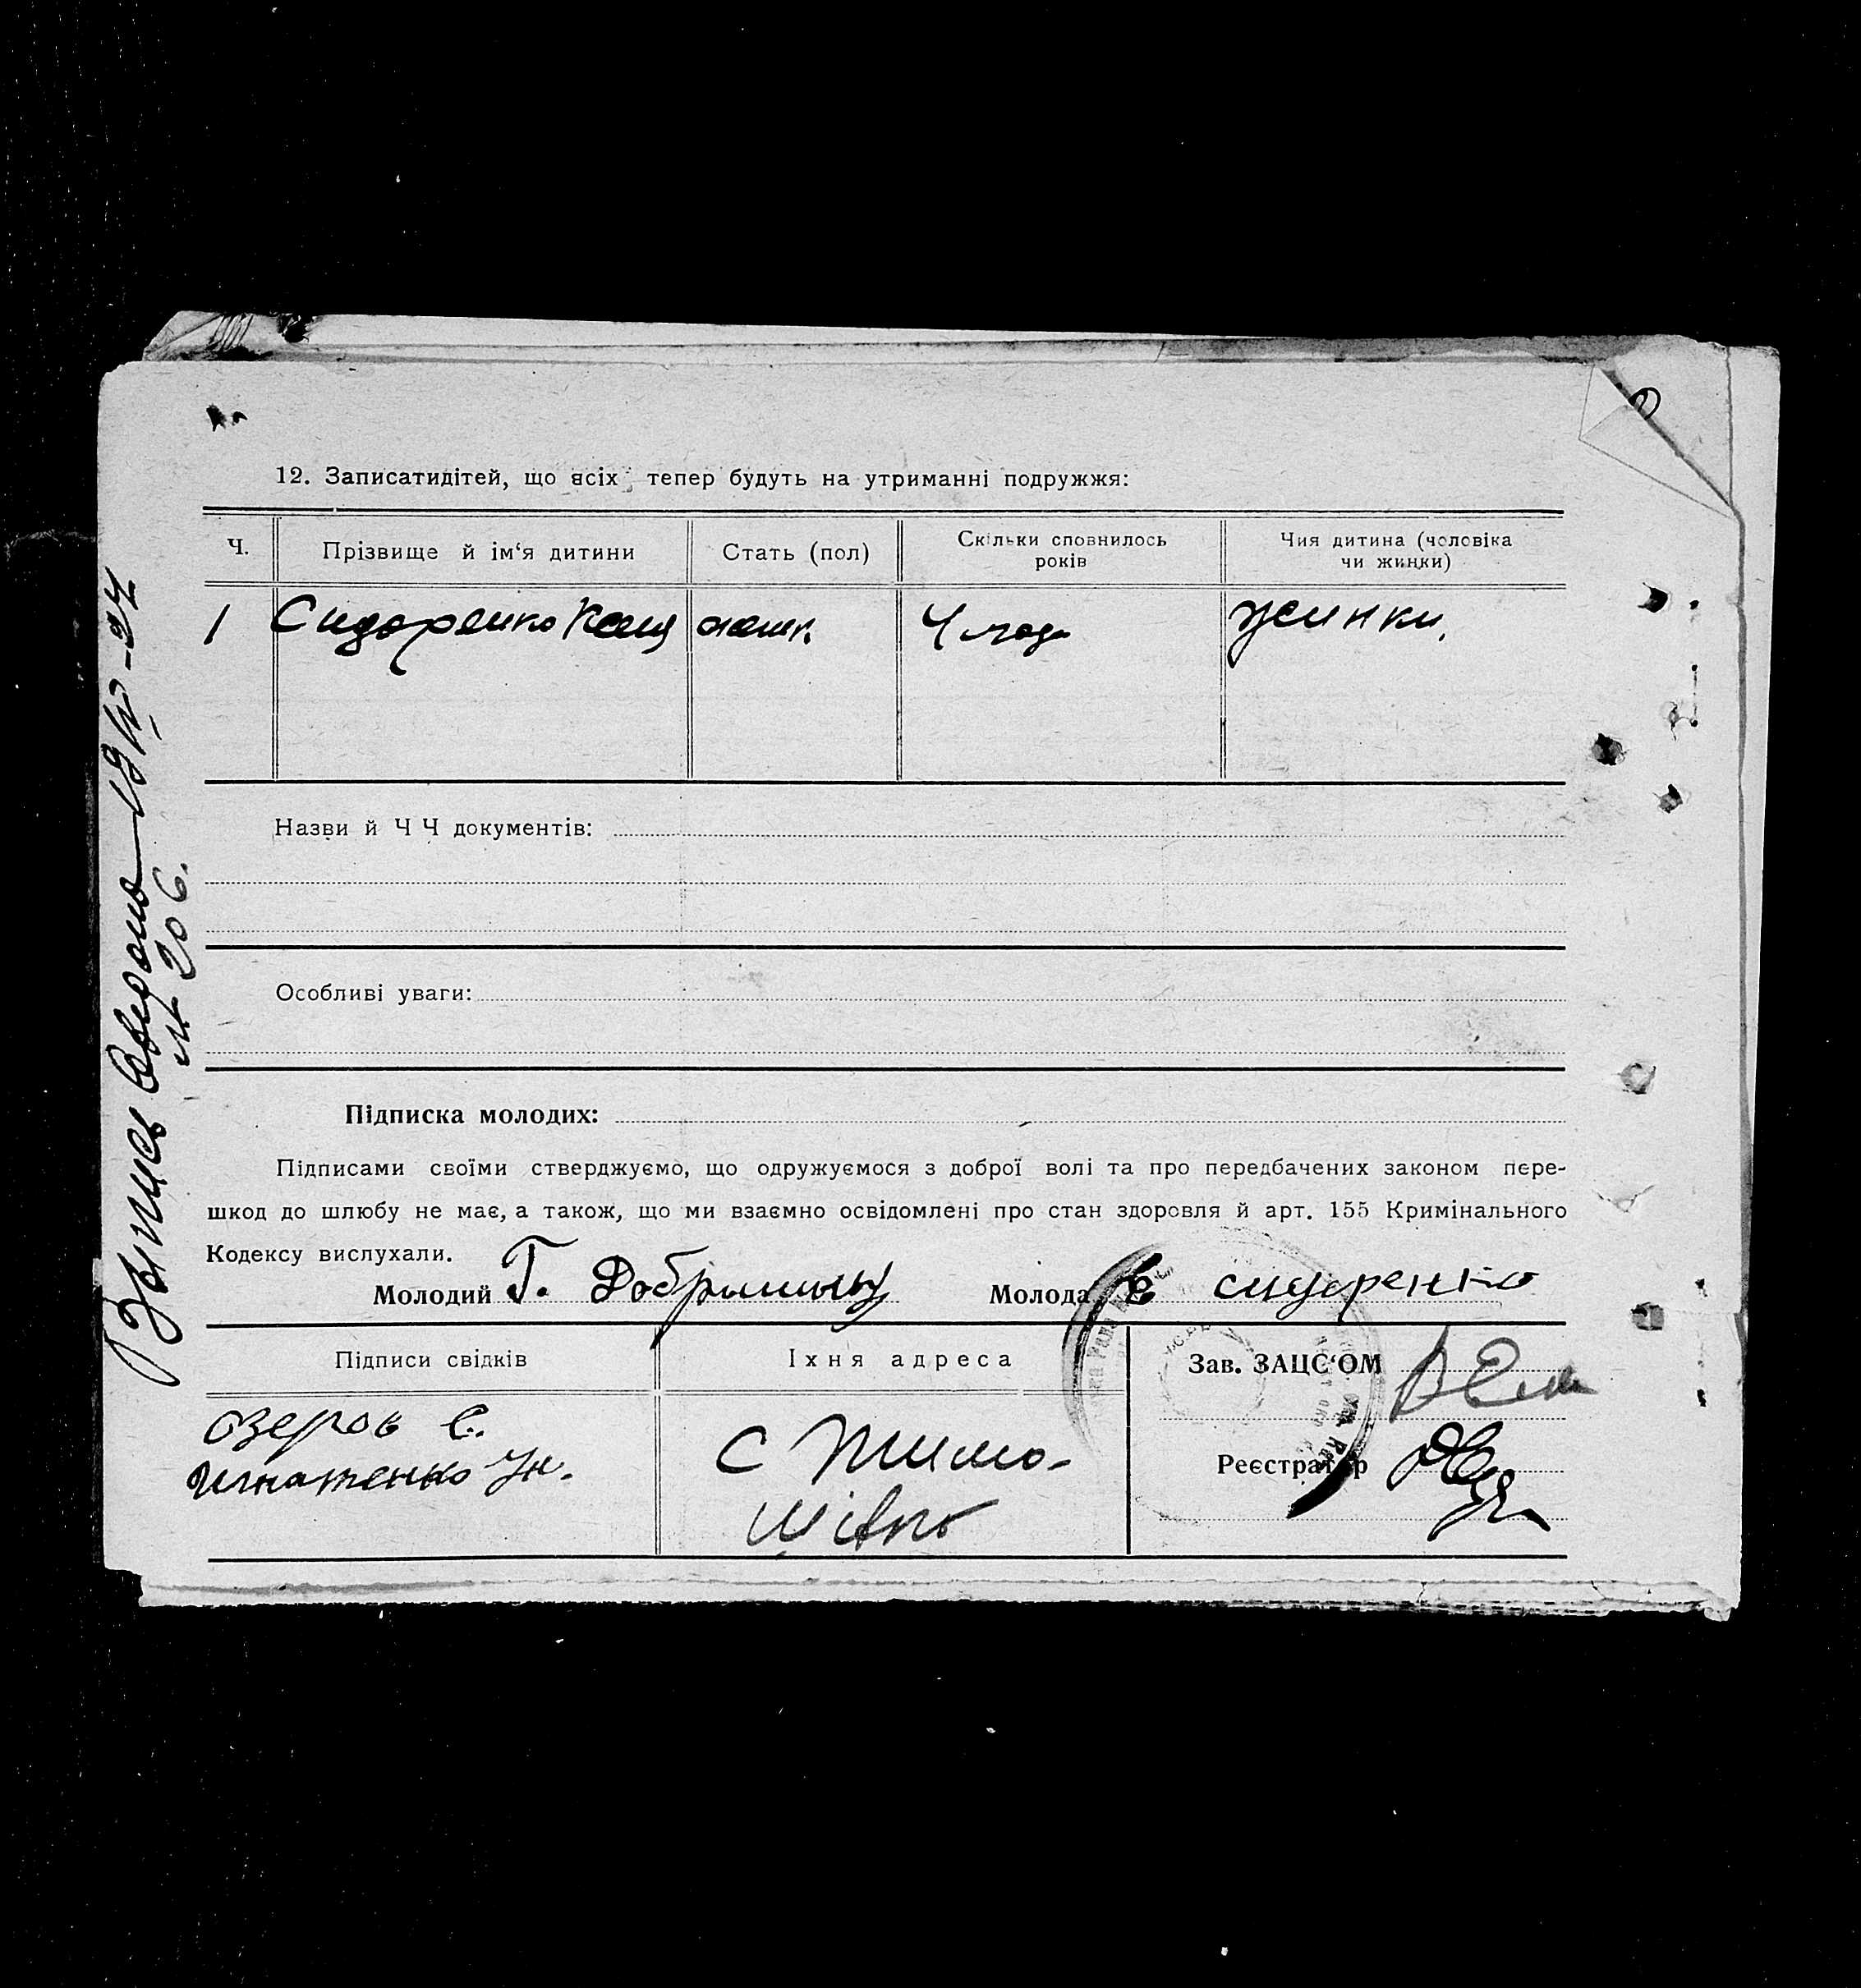 12. Записатидітей, що всіх тепер будуть на утриманні подружжя:
Ч. Прізвище й ім‘я дитини Стать (пол) Скільки сповнилось років Чия дитина (чоловіка чи жинки)
1 Сидоренко 4 жинки.
Назви й Ч Ч документів:
Особливі уваги:
Підписка молодих:
Підписами своїми стверджуємо, що одружуємося з доброї волі та про передбачених законом пере-
шкод до шлюбу не має, а також, що ми взаємно освідомлені про стан здоровля й арт. 155 Кримінального
Кодексу вислухали.
Молодий Г. Молода Е Сидоренко
Підписи свідків Їхня адреса Зав. ЗАЦС‘ОМ
Озеров Е.
Игнатенко Ин.
С Тимо-
шівка
Реєстратор
Запись сверена
№ 206.